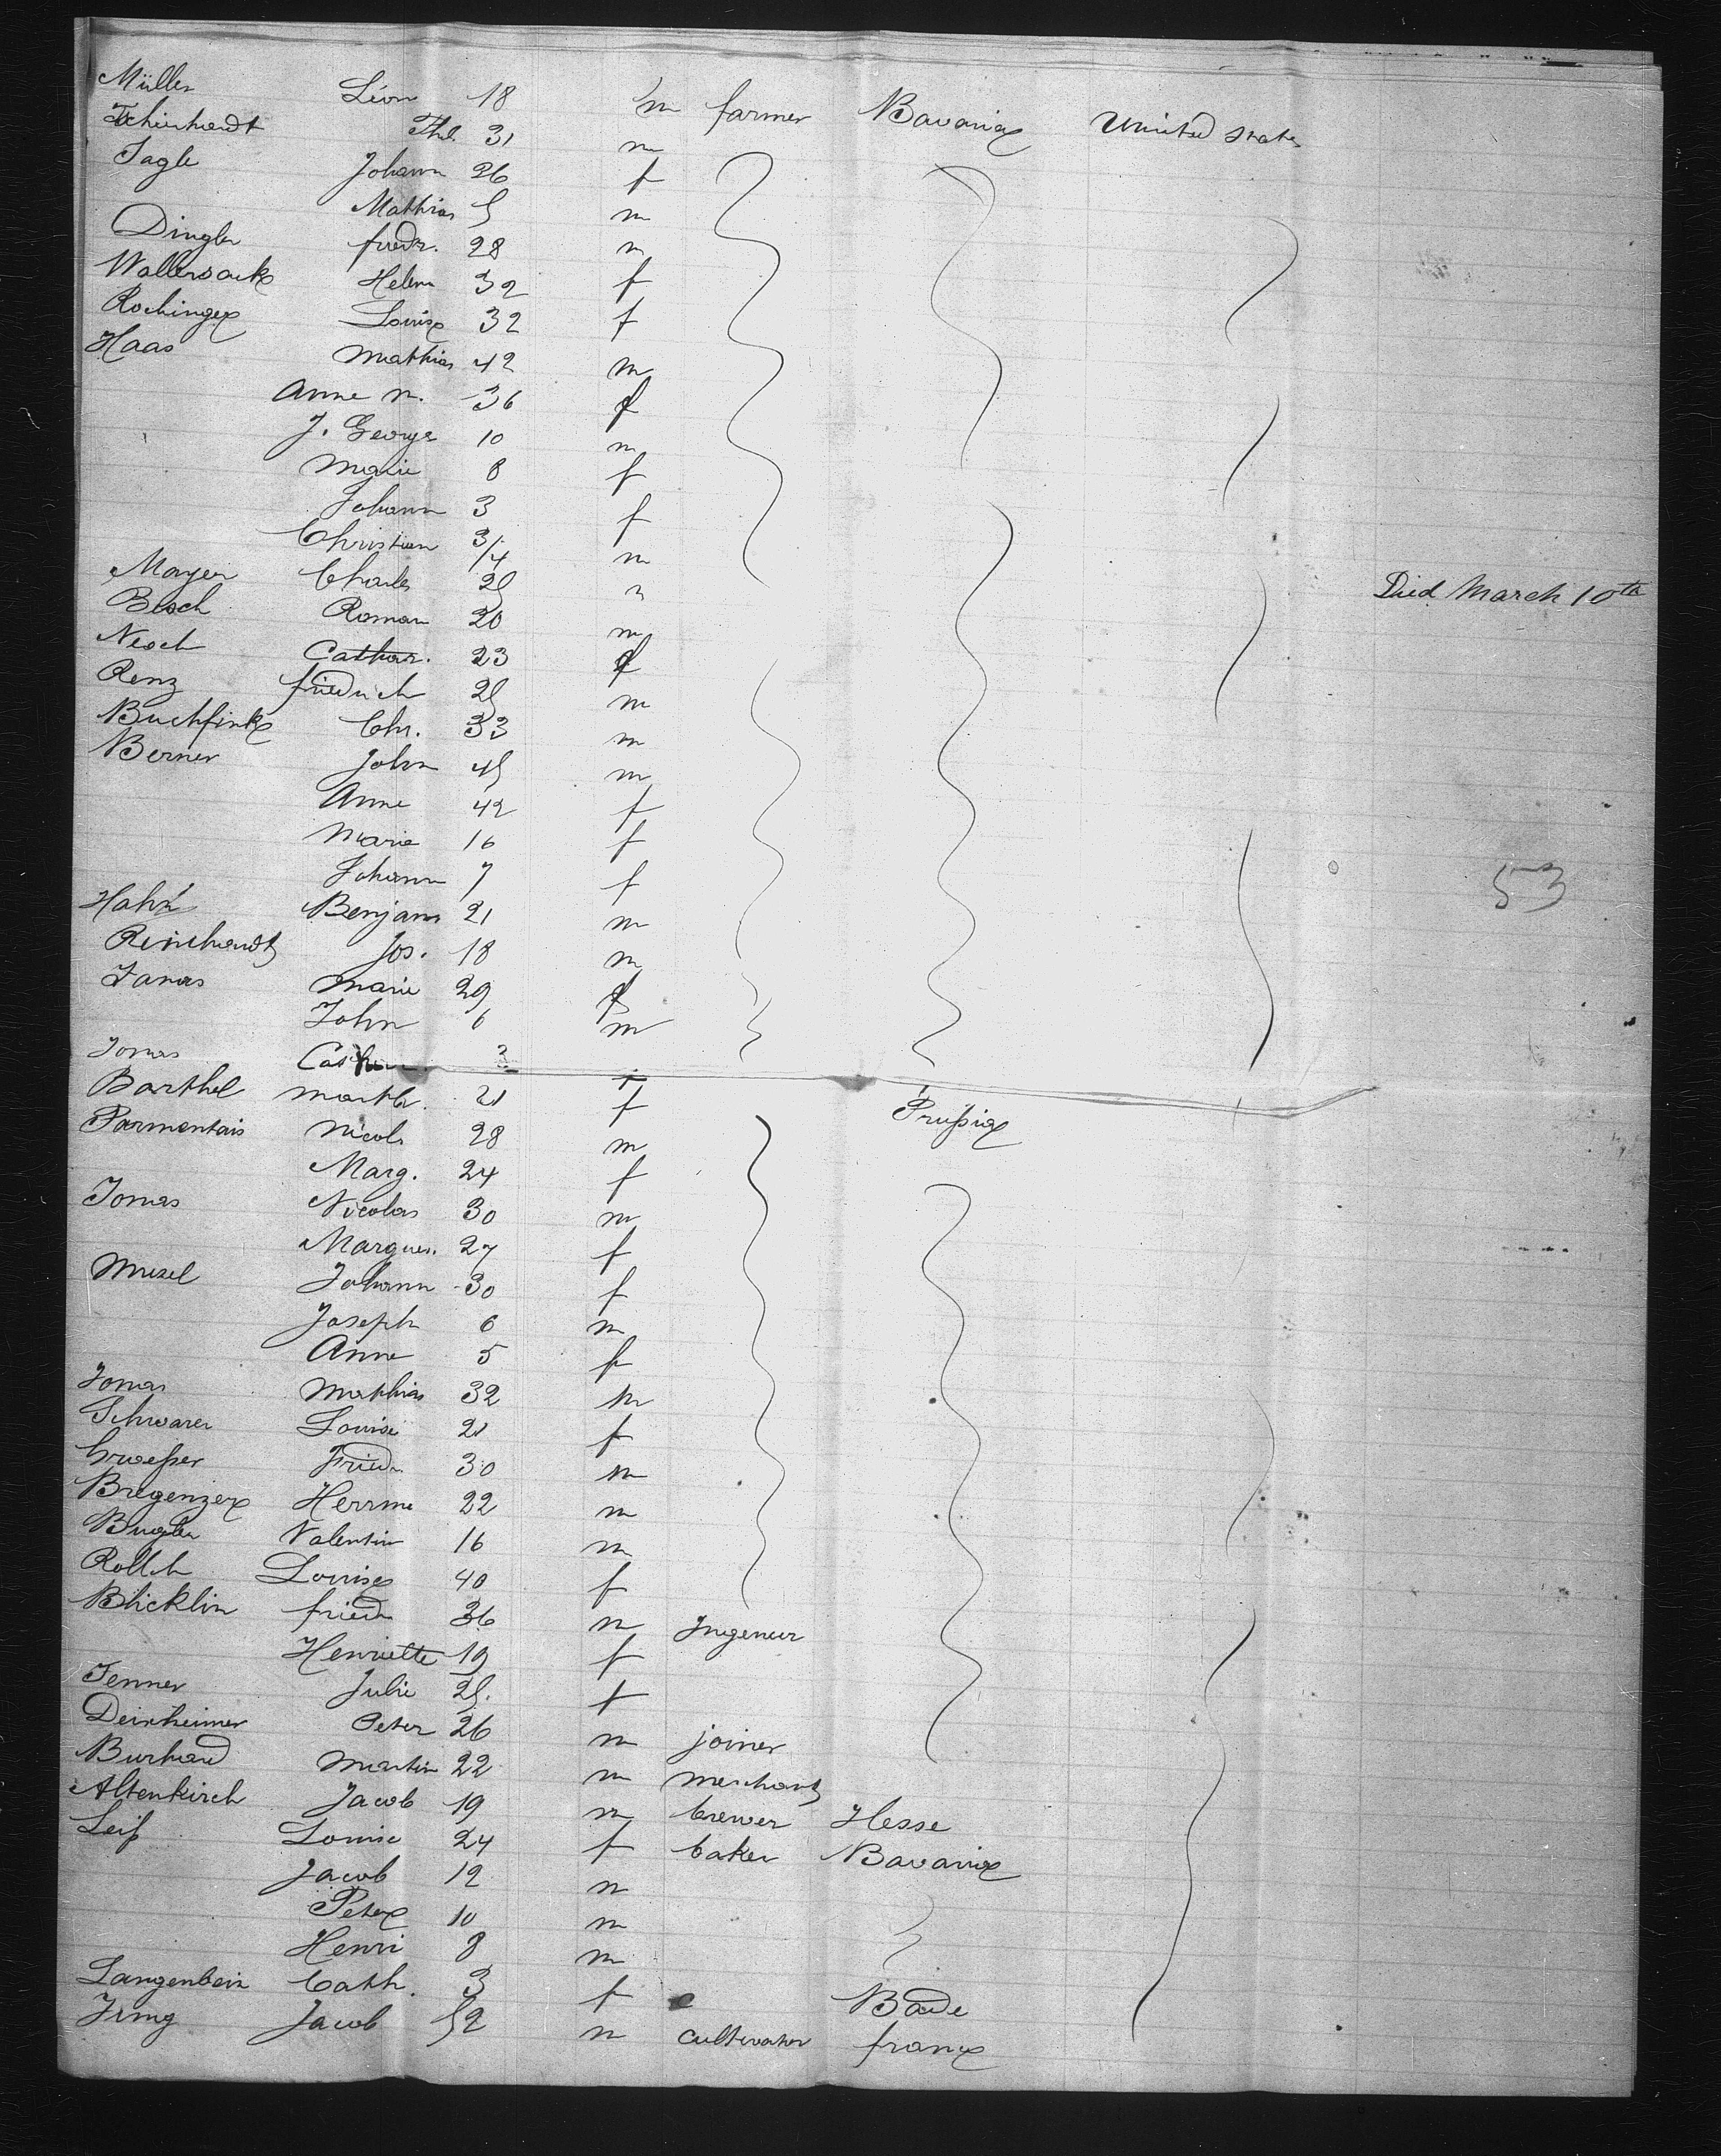 Müller Léon 18 m farmer Bavaria United States
Schinhardt Thd. 31 m
Jagle Johann 26 f
Mathias 5 m
Dingler friedr. 28 m
Wallersack Helen 32 f
Rochinger Louise 32 f
Haas Mathias 42 m
Anne M. 36 f
J. George 10 m
Marie 8 f
Johann 3 f
Christian 3/4 m
Mayer Charles 25 m Died March 10th
Bloch Roman 20 m
Neoch Cathar. 23 f
Renz friedrich 25 m
Buchfink Chr. 33 m
Berner John 45 m
Anne 42 f
Marie 16 f
Johann 7 f
53
Hahn Benjam 21 m
Reinhardt Jos. 18 m
Janas Marie 29 f
John 6 m
Jonas 3 f
Barthel Marth. 21 f Prußia
Parmentais Nicol. 28 m
Marg. 24 f
Jonas Nicolas 30 m
Marguer. 27 f
Musel Johann 30 f
Joseph 6 m
Anne 5 f
Jonas Mathias 32 m
Schwarer Louise 21 f
Friedr. 30 m
Bregenzer Herrme 22 m
Bugler Valentin 16 m
Rollch Louise 40 f
Blicklin friedr 36 m Ingeneur
Henriette 19 f
Jenner Julie 25. f
Deirheimer Peter 26 m joiner
Burhard Martin 22 m merchant
Altenkirch Jacob 19 m brewer Hesse
Leiß Louise 24 f baker Bavaria
Jacob 12 m
Peter 10 m
Henri 8 m
Langenbein Cath. 3 f Bade
Irmg Jacob 52 m cultivator france